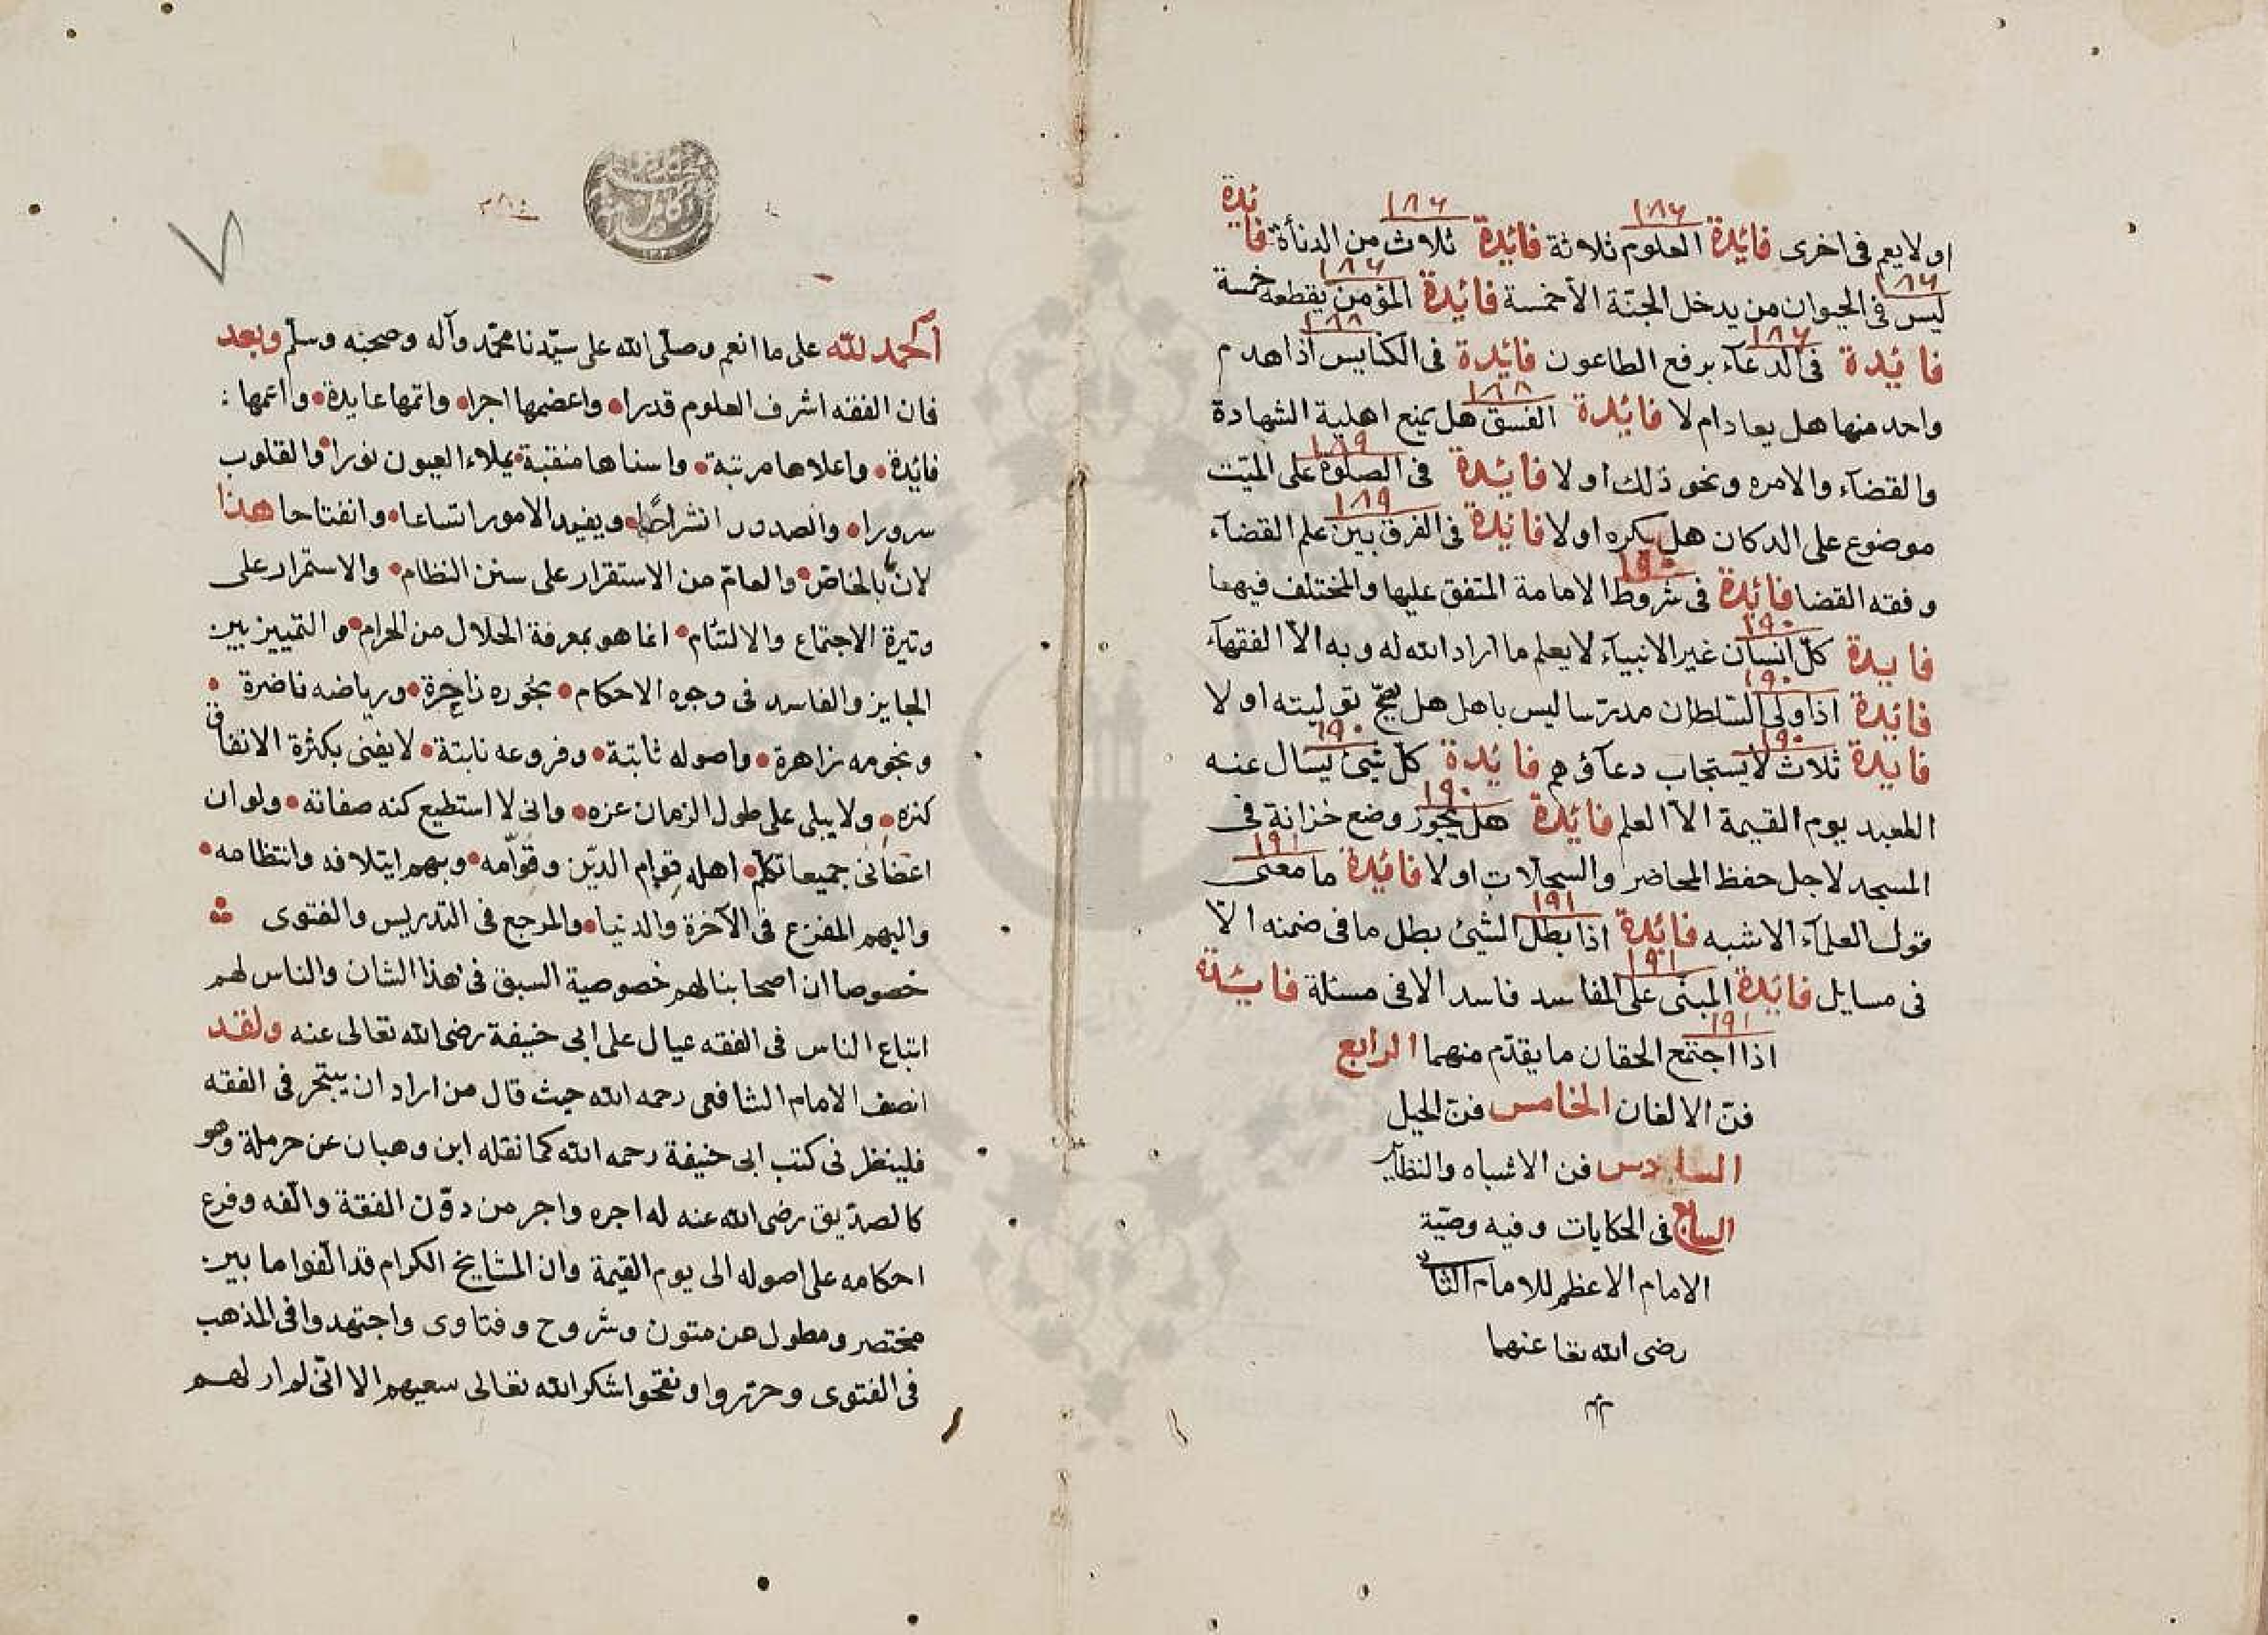 او لا يعم فى اخرى فائدة العلوم ثلاثة فائدة ثلاث من الدنأة فائدة
١٨٦ ١٨٦
ليس فى الحيوان من يدخل الجنة الا خمسة فائدة المؤمن يقطعه خمسة
١٨٦ ١٨٦
فائدة فى الدعآء برفع الطاعون فائدة فى الكنايس اذا هدم
١٨٦ ١٨٨
واحد منها هل يعاد ام لا فائدة الفسق هل يمنع اهلية الشهادة
١٨٨
والقضآء والامره ونحو ذلك او لا فائدة فى الصلوة على الميّت
١٨٩
موضوع على الدكان هل يكره او لا فائدة فى الفرق بين علم القضآء
١٨٩
وفقه القضا فائدة فى شروط الامامة المتفق عليها والمختلف فيها
١٩٠
فايدة كلّ انسان غير الانبيآء لا يعلم ما اراد الله له وبه الا الفقهآء
١٩٠
فائدة اذا ولى السّلطان مدرّسا ليس باهل هل يصحّ توليته او لا
١٩٠
فايدة ثلاث لا يستجاب دعآؤهم فائدة كلّ شئ يسال عنه
١٩٠ ١٩٠
العبد يوم القيمة الا العلم فائدة هل يجوز وضع خزانة فى
١٩٠
المسجد لاجل حفظ المحاضر والسجلات او لا فائدة ما معنى
١٩١
قول العلمآء الاشبه فائدة اذا بطل الشئ بطل ما فى ضمنه الا
١٩١
فى مسايل فائدة المبنى على الفاسد فاسد الا فى مسئلة فائدة
١٩١
اذا اجتمع الحقان ما يقدّم منهما الرابع
١٩١
فنّ الالغان الخامس فنّ الحيل
السادس فن الاشباه والنظآئر
السابع فى الحكايات وفيه وصيّة
الامام الاعظم للامام الثانى
رضى الله تعا عنهما
الحمد لله على ما انعم وصلّى الله على سيّدنا محمّد وآله وصحبه وسلّم وبعد
فان الفقه اشرف العلوم قدرا واعضمها اجرا واتمها عايدة واعمها
فائدة واعلاها مرتبة واسناها منقبة يملاء العيون نورا والقلوب
سرورا والصدور انشراحًا ويفيد الامور اتساعا وانفتاحا هذا
لان بالخاصّ والعامّ من الاستقرار على سنن النظام والاستمرار على
وتيرة الاجتماع والالتئام انما هو بمعرفة الحلال من الحرام والتمييز بين
الجايز والفاسد فى وجوه الاحكام بخوره زاخرة ورياضه ناضرة
ونجومه زاهرة واصوله ثابتة وفروعه نابتة لا يفنى بكثرة الانفاق
كنزه ولا يبلى على طول الزمان عزه وانى لا استطيع كنه صفاته ولو ان
اعضائى جميعا تكلّم اهله قوام الديّن وقوّامه وبهم ايتلافه وانتظامه
واليهم المفزع فى الآخرة والدنيا والمرجع فى التدريس والفتوى
خصوصا ان اصحابنا لهم خصوصية السبق فى هذا الشان والناس لهم
اتباع الناس فى الفقه عيال على ابى حنيفة رضى الله تعالى عنه ولقد
انصف الامام الشافعى رحمه الله حيث قال من اراد ان يتبحر فى الفقه
فلينظر فى كتب ابى حنيفة رحمه الله كما نقله ابن وهبان عن حرملة وهو
كالصدّيق رضى الله عنه له اجره واجر من دوّن الفقة والّفه وفرع
احكامه على اصوله الى يوم القيمة وان المشايخ الكرام قد الّفوا ما بين
مختصر ومطول من متون وشروح وفتاوى واجتهدوا فى المذهب
فى الفتوى وحرّروا ونقحوا شكر الله تعالى سعيهم الا انّى لم ار لهم